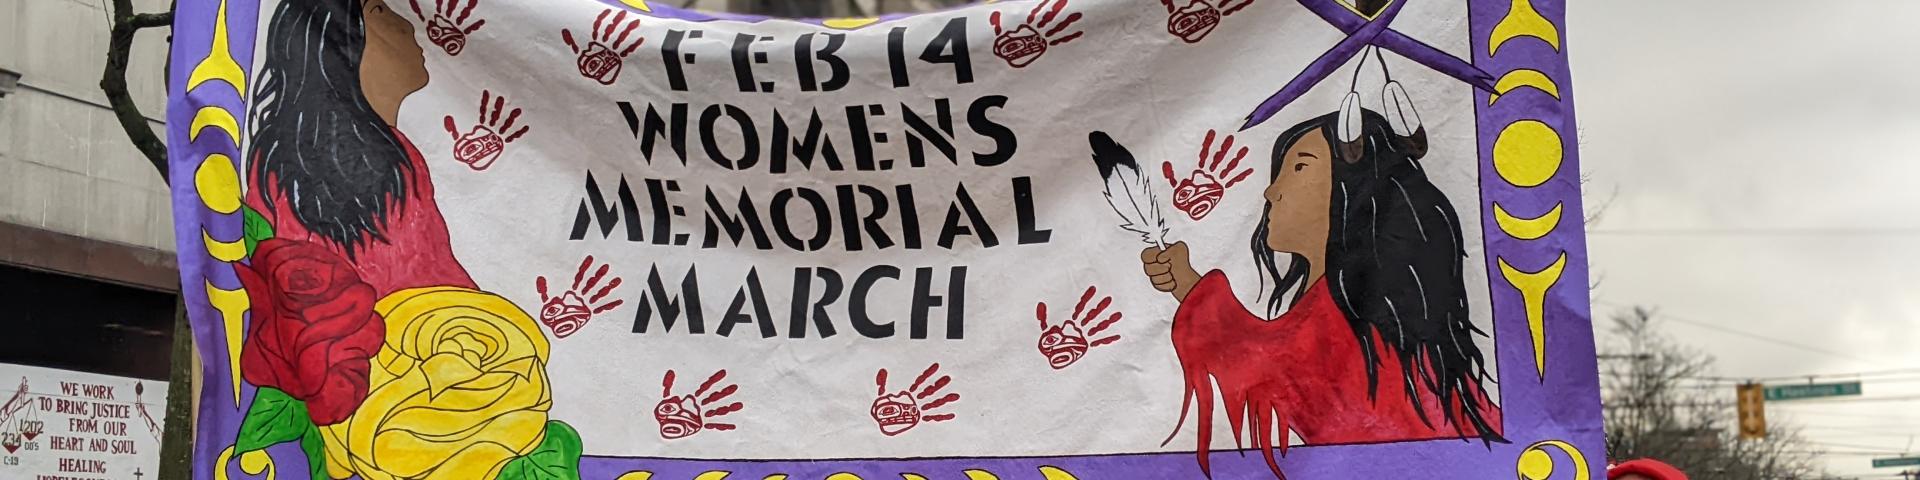 FEB 14
WOMENS
MEMORIAL
MARCH
WE WORK
TO BRING JUSTICE
FROM OUR
HEART AND SOUL
HEALING
234
1202
OD'S
C-19